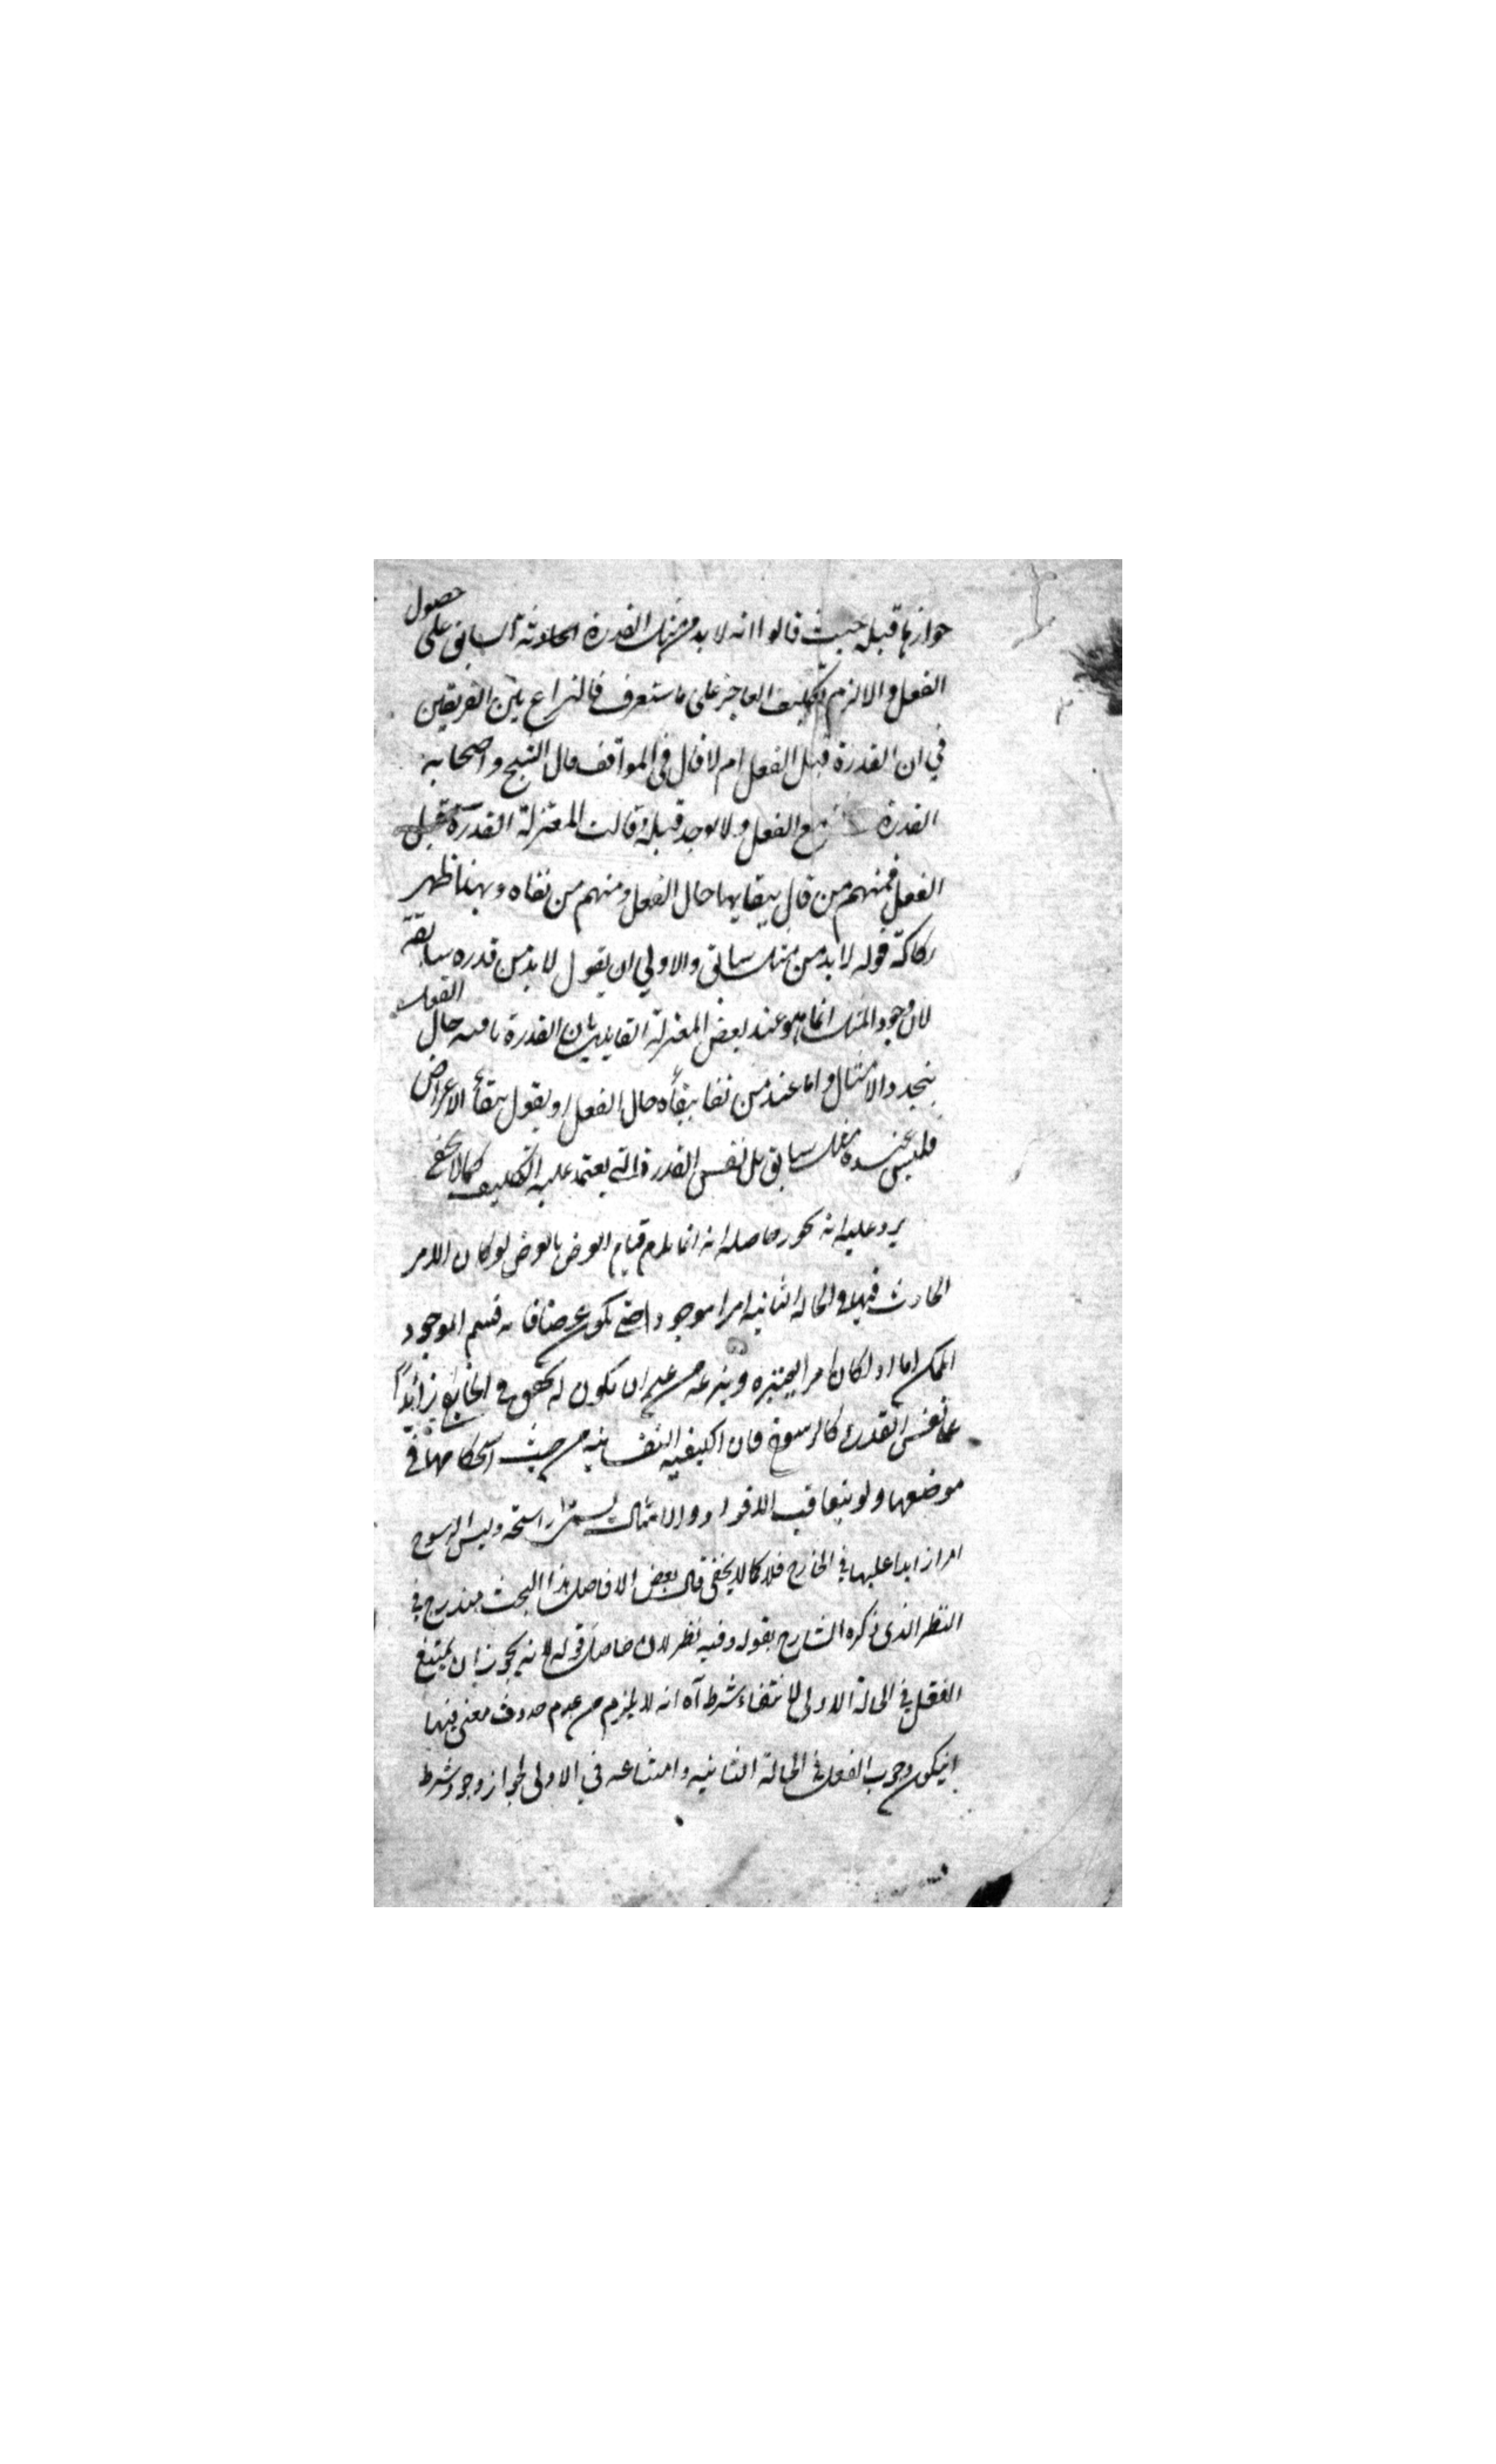 جوازها قبله حيث قالوا انه لا بد من مثل القدرة الحادثة السابق على حصول
الفعل والا لزم تكليف العاجز على ما ستعرف فالنزاع بين الفريقين
في ان القدرة قبل الفعل ام لا قال في المواقف قال الشيخ واصحابه
القدرة مع الفعل ولا توجد قبله وقالت المعتزلة القدرة قبل
الفعل فمنهم من قال ببقايها حال الفعل ومنهم من نفاه وبهذا ظهر
ركاكة قوله لا بد من مثل سابق والاولي ان يقول لا بد من قدرة سابقة
لان وجود المثل انما هو عند بعض المعتزلة القايلين بان القدرة باقيه حال الفعل
بتجدد الامثال واما عند من نفا بقاه حال الفعل او يقول ببقاء الاعراض
فليس عنده مثل سابق بل نفس القدرة التي يعتمد عليه التكليف كما لا يخفى
يرد عليه انه يجوز حاصله انه انما يلزم قيام العرض بالعرض لو كان الامر
الحادث فيها في الحالة الثانيه امرا موجودا حتى يكون عرضا فانه قسم الموجود
الممكن اما اذا كان امرا يعتبره وينزعه من غير ان يكون له تحقق في الخارج زائدا
على نفس القدرة كالرسوخ فان الكيفيه النفسانيه من حيث استحكامها في
موضعها ولو بتعاقب الافراد والامثال تسمى راسخة وليس الرسوخ
امرا زايدا عليها في الخارج فلا كما لا يخفى قال بعض الافاضل هذا البحث مندرج في
النظر الذي ذكره الشارح بقوله وفيه نظر لان حاصل قوله لانه يجوز ان يمتنع
الفعل في الحالة الاولى لانتفاء شرط آه انه لا يلزم من عدم حدوث معنى فيها
ان يكون وجوب الفعل في الحالة الثانيه وامتناعه في الاولى لجواز وجود شرط